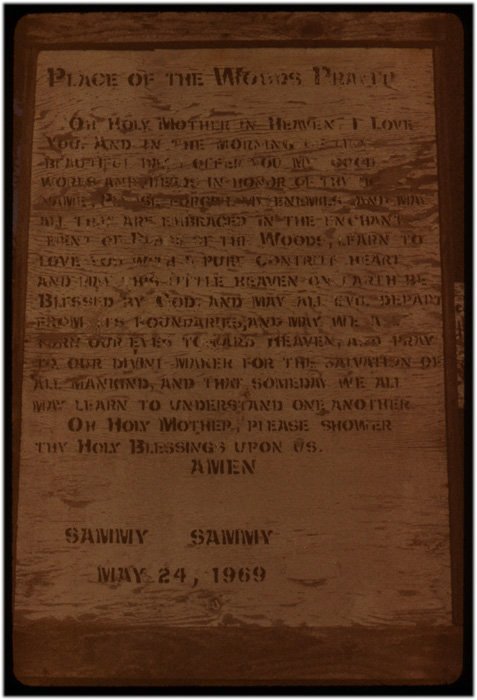 PLACE OF THE WOODS PRAYER
OH HOLY MOTHER IN HEAVEN, I LOVE
YOU, AND IN THE MORNING OF THIS
BEAUTIFUL DAY I OFFER YOU MY GOOD
WORKS AND DEEDS IN HONOR OF THY
NAME. PLEASE FORGIVE MY ENEMIES AND MAY
ALL THAT ARE EMBRACED IN THE ENCHANT
MENT OF PLACE OF THE WOODS, LEARN TO
LOVE GOD WITH A PURE CONTRITE HEART
AND MAY THIS LITTLE HEAVEN ON EARTH BE
BLESSED BY GOD. AND MAY ALL EVIL DEPART
FROM ITS BOUNDARIES, AND MAY WE
TURN OUR EYES TOWARD HEAVEN, AND PRAY
TO OUR DIVINE MAKER FOR THE SALVATION OF
ALL MANKIND, AND THAT SOMEDAY WE ALL
MAY LEARN TO UNDERSTAND ONE ANOTHER
OH HOLY MOTHER, PLEASE SHOWER
THY HOLY BLESSINGS UPON US.
AMEN
SAMMY SAMMY
MAY 24, 1969